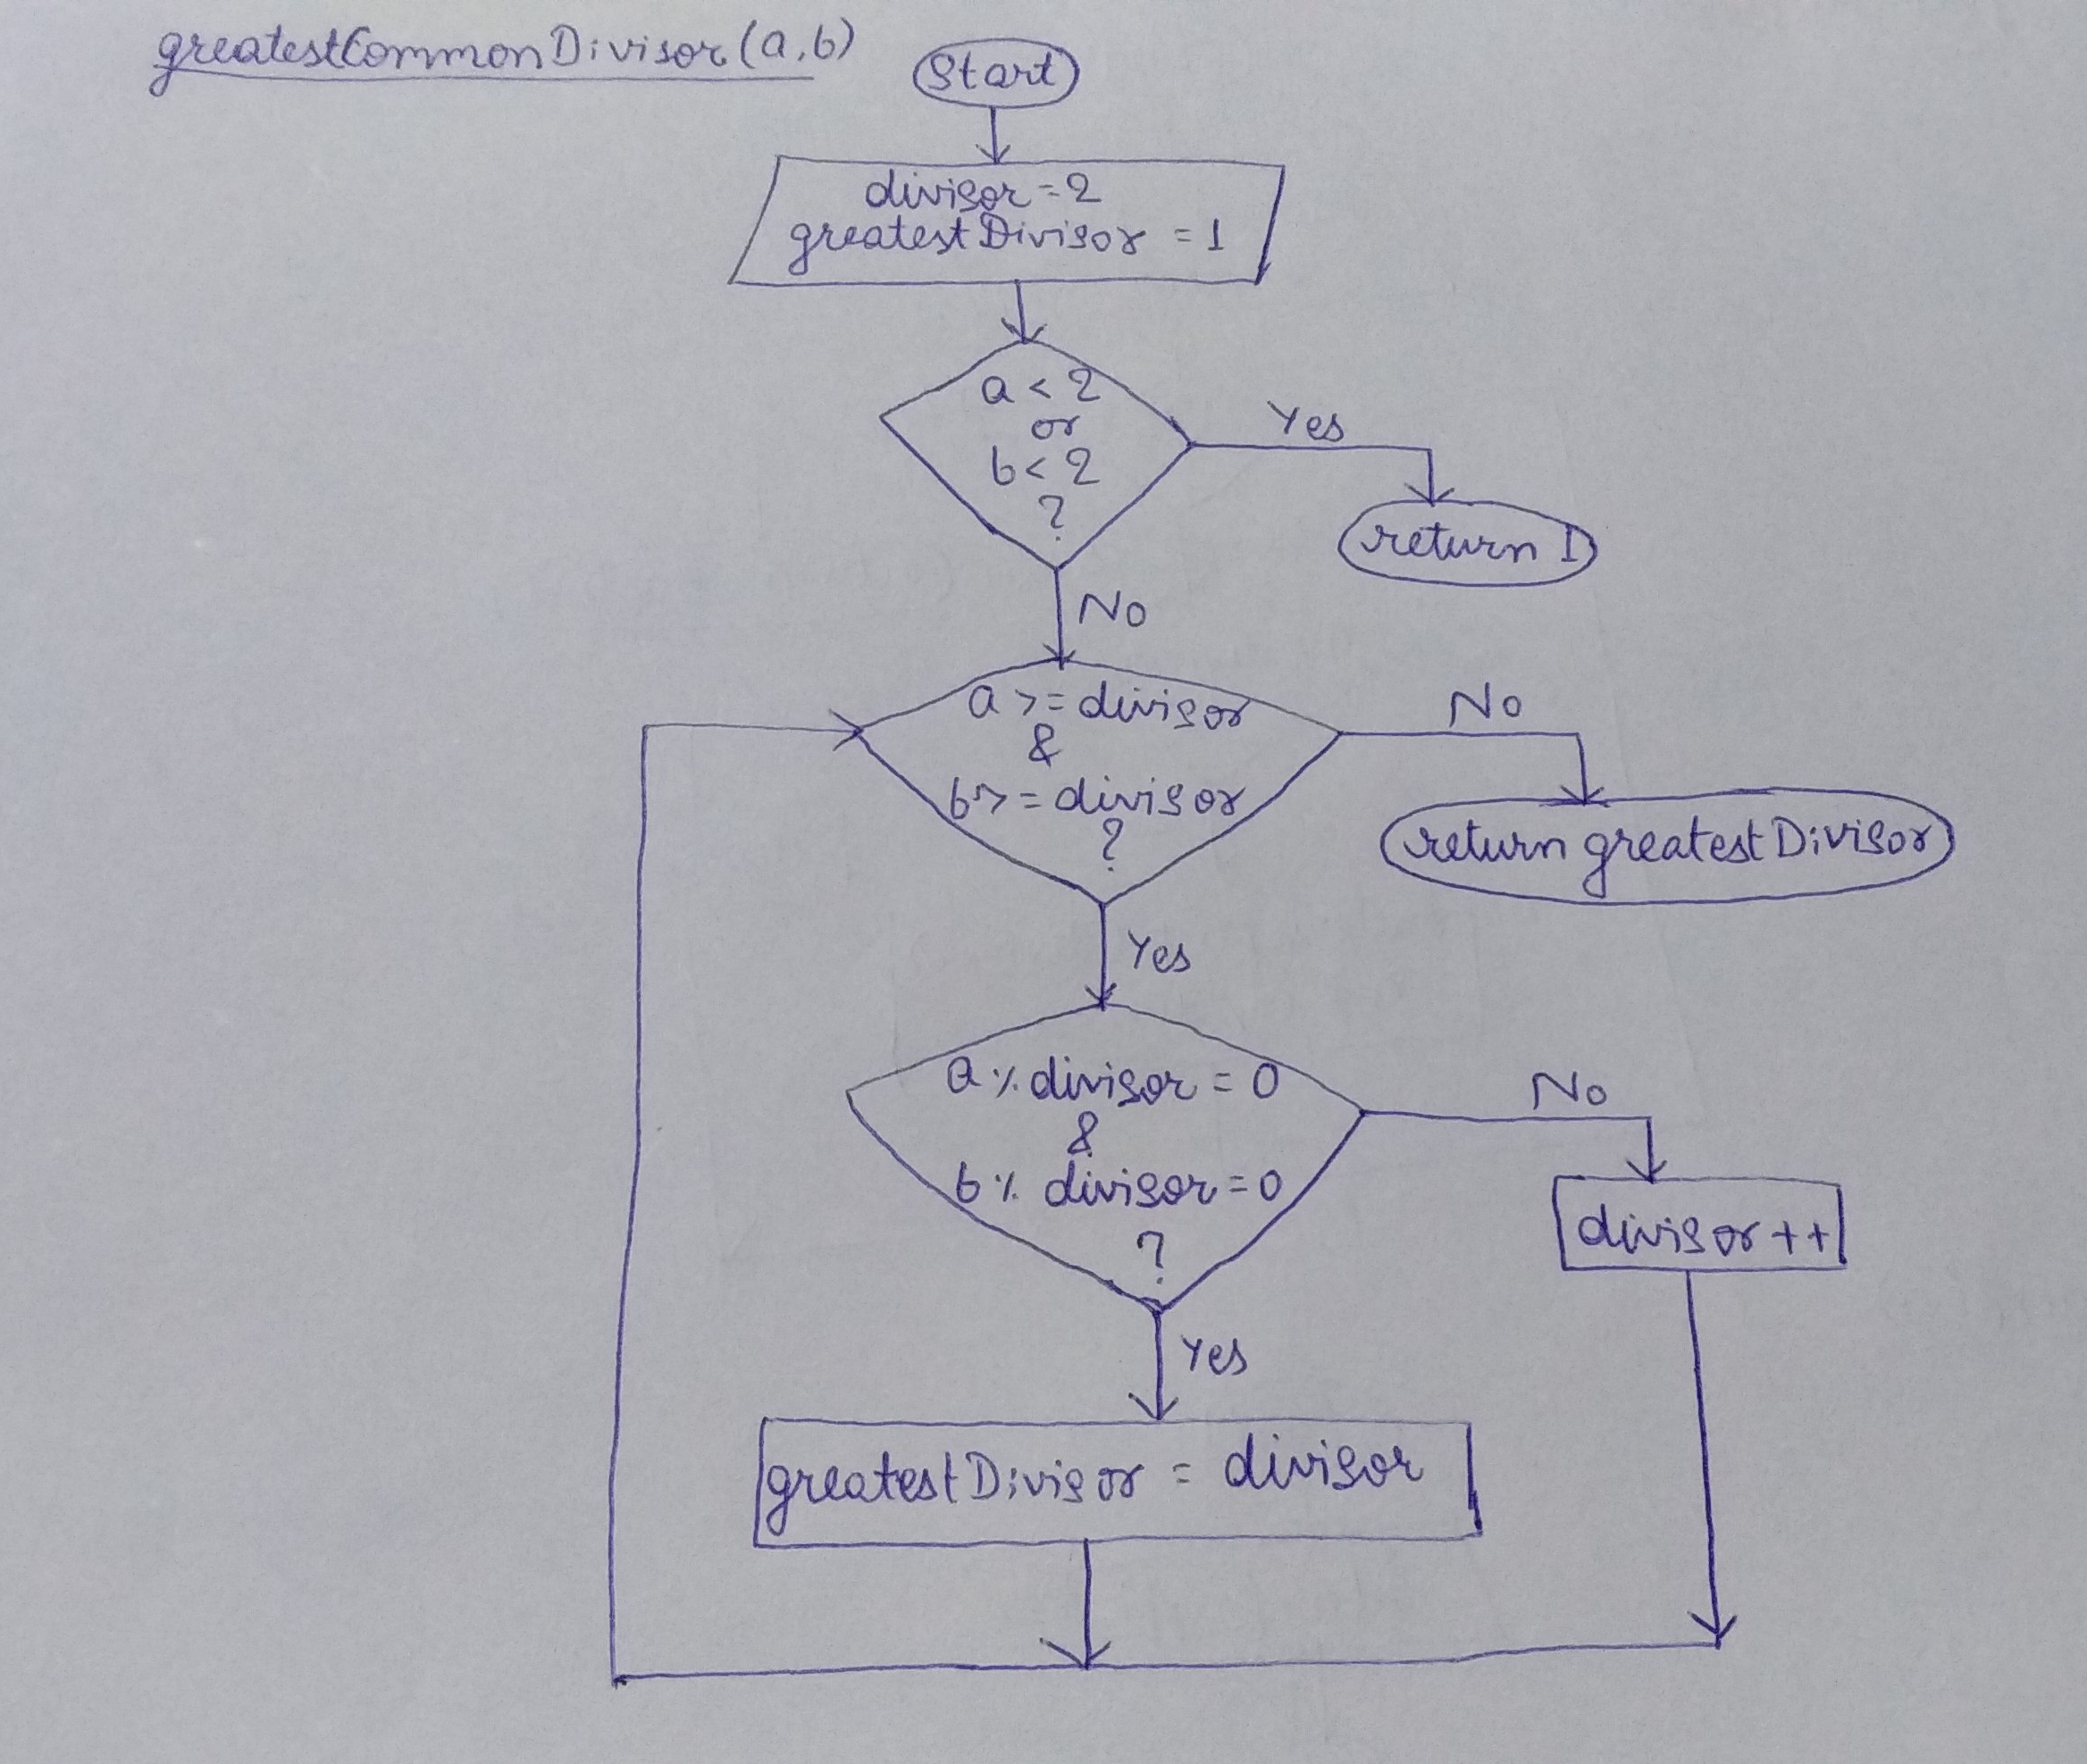 greatestCommonDivisor(a,b)
Start
divisor = 2
greatestDivisor = 1
a < 2
or
b < 2
?
Yes
return 1
No
a >= divisor
&
b >= divisor
?
No
return greatestDivisor
Yes
a % divisor = 0
&
b % divisor = 0
?
No
divisor++
Yes
greatestDivisor = divisor